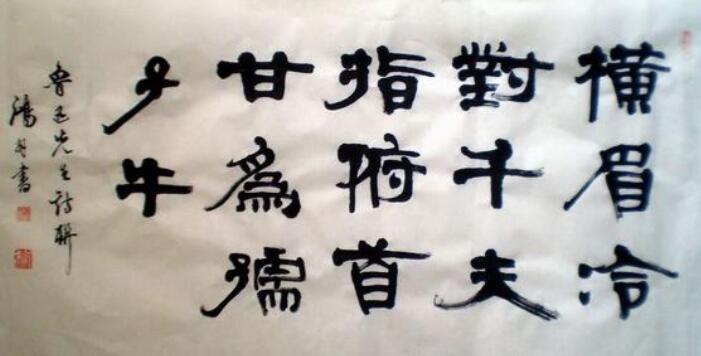 橫眉冷
對千夫
指俯首
甘為孺
子牛
魯迅先生詩聯
鴻書